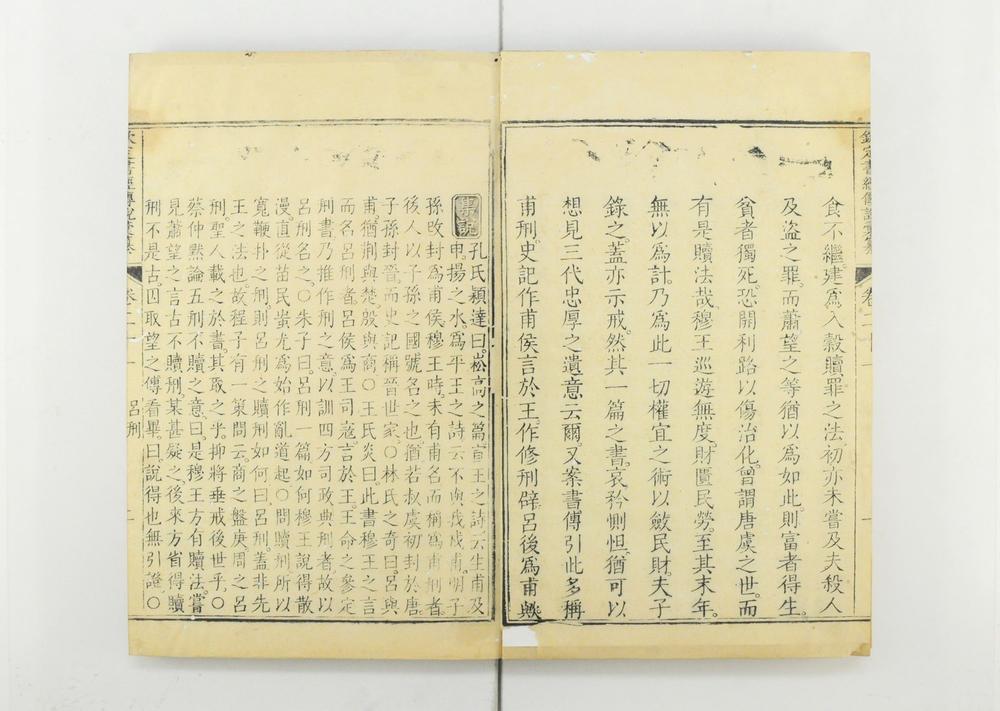 食不繼建爲入穀贖罪之法初亦未嘗及夫殺人
及盜之罪而蕭望之等猶以爲如此則富者得生
貧者獨死恐開利路以傷治化曾謂唐虞之世而
有是贖法哉穆王巡遊無度財匱民勞至其末年
無以爲計乃爲此一切權宜之術以斂民財夫子
錄之蓋亦示戒然其一篇之書哀矜惻怛猶可以
想見三代忠厚之遺意云爾又案書傳引此多稱
甫刑史記作甫侯言於王作修刑辟呂後爲甫歟
集說孔氏穎達曰崧高之篇宣王之詩云生甫及
申揚之水爲平王之詩云不與我戍甫明子
孫改封爲甫侯穆王時未有甫名而稱爲甫刑者
後人以子孫之國號名之也猶若叔虞初封於唐
子孫封晉而史記稱晉世家○林氏之奇曰呂與
甫猶荆與楚殷與商○王氏炎曰此書穆王之言
而名呂刑者呂侯爲王司寇言於王王命之參定
刑書乃推作刑之意以訓四方司政典刑者故以
呂刑名之○朱子曰呂刑一篇如何穆王說得散
漫直從苗民蚩尤爲始作亂道起○問贖刑所以
寬鞭扑之刑則呂刑之贖刑如何曰呂刑蓋非先
王之法也故程子有一策問云商之盤庚周之呂
刑聖人載之於書其取之乎抑將垂戒後世乎○
蔡仲默論五刑不贖之意曰是穆王方有贖法嘗
見蕭望之言古不贖刑某甚疑之後來方省得贖
刑不是古因取望之傳看畢曰說得也無引證○
欽定書經傳說彙纂
卷二十一
呂刑
二